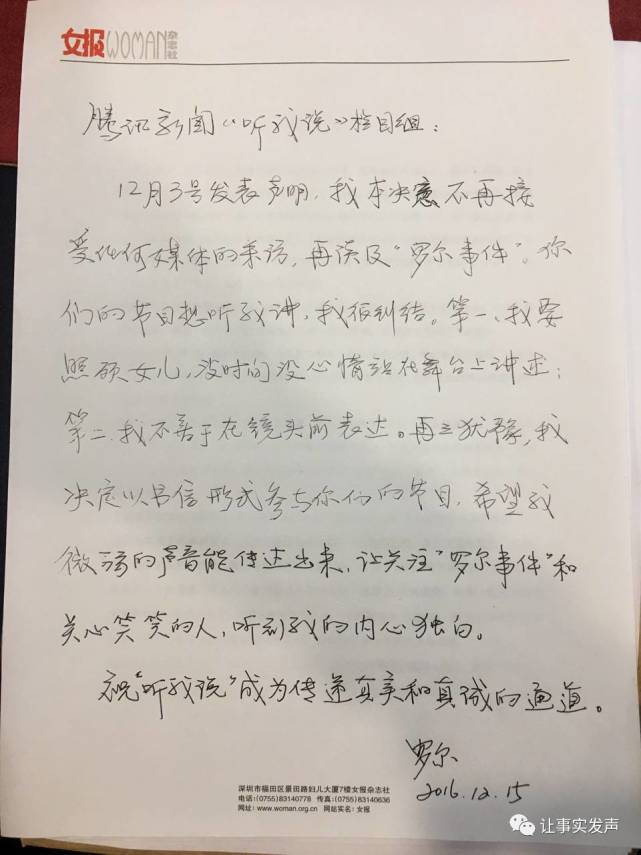 女报WOMAN杂志社
腾讯新闻《听我说》栏目组：
12月3号发表声明，我本决意不再接
受任何媒体的采访，再谈及“罗尔事件”。你
们的节目想听我讲，我很纠结。第一、我要
照顾女儿，没时间没心情站在舞台上讲述；
第二、我不善于在镜头前表达。再三犹豫，我
决定以书信形式参与你们的节目，希望我
微弱的声音能传达出来，让关注“罗尔事件”和
关心笑笑的人，听到我的内心独白。
祝“听我说”成为传递真美和真诚的通道。
罗尔
2016.12.15
深圳市福田区景田路妇儿大厦7楼女报杂志社
电话:(0755)83140778 传真:(0755)83140636
网址: www.woman.org.cn 网站实名: 女报
让事实发声